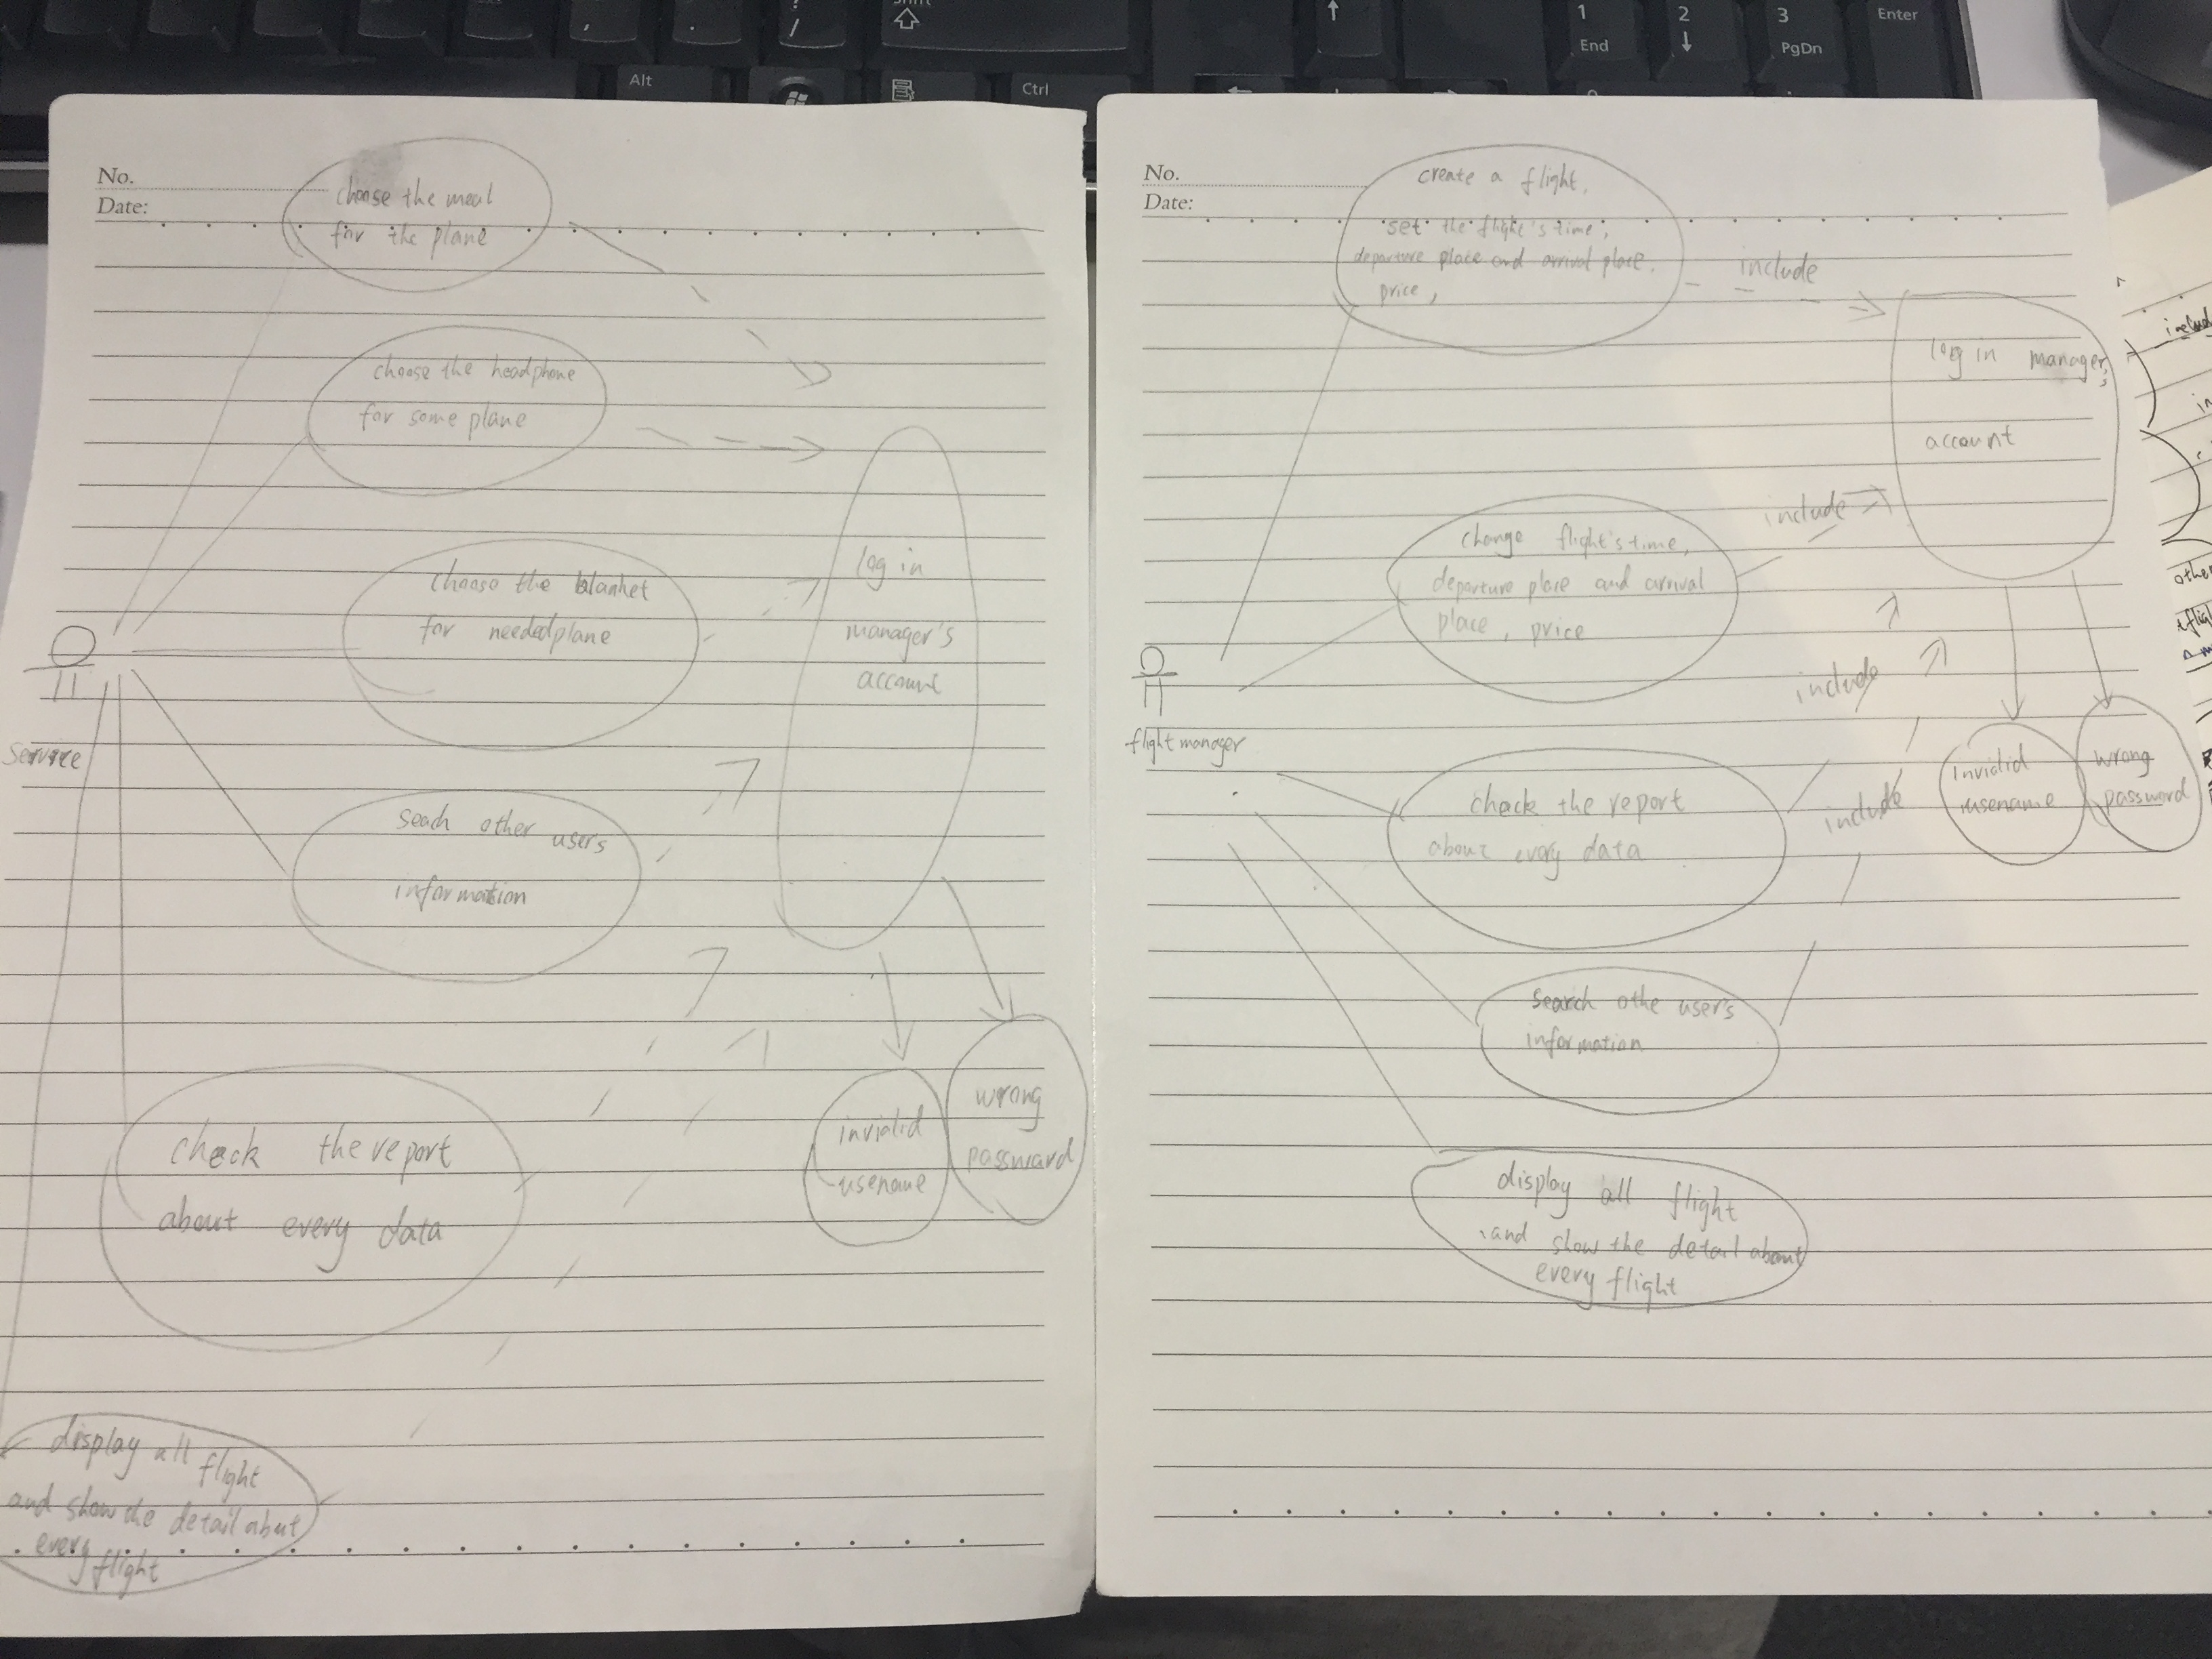 Shift
Alt
Ctrl
1
End
2
3
PgDn
Enter
No.
Date:
choose the meal
for the plane
choose the headphone
for some plane
choose the blanket
for needed plane
log in
manager's
account
Service
seach other users
information
check the report
about every data
invialid
usename
wrong
password
display all flight
and show the detail abut
every flight
No.
Date:
create a flight,
set the flight's time,
departure place and arrival place,
price,
include
log in manager's
account
include
change flight's time,
departure place and arrival
place, price
include
flight manager
check the report
about every data
include
invialid
usename
wrong
password
search othe user's
information
display all flight
and show the detail about
every flight